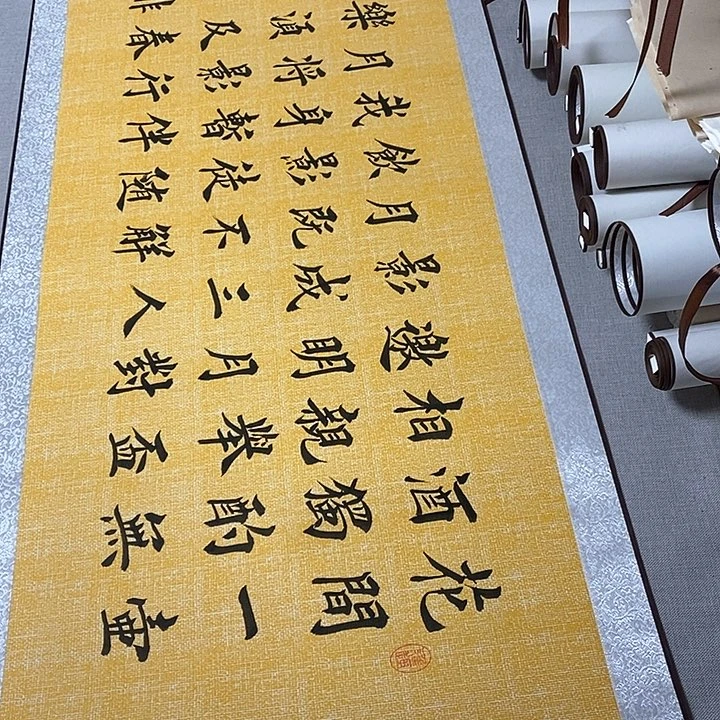 花間一壺
酒獨酌無
相親舉盃
邀明月對
影成三人
月既不解
飲影徒隨
我身暫伴
月將影行
樂須及春